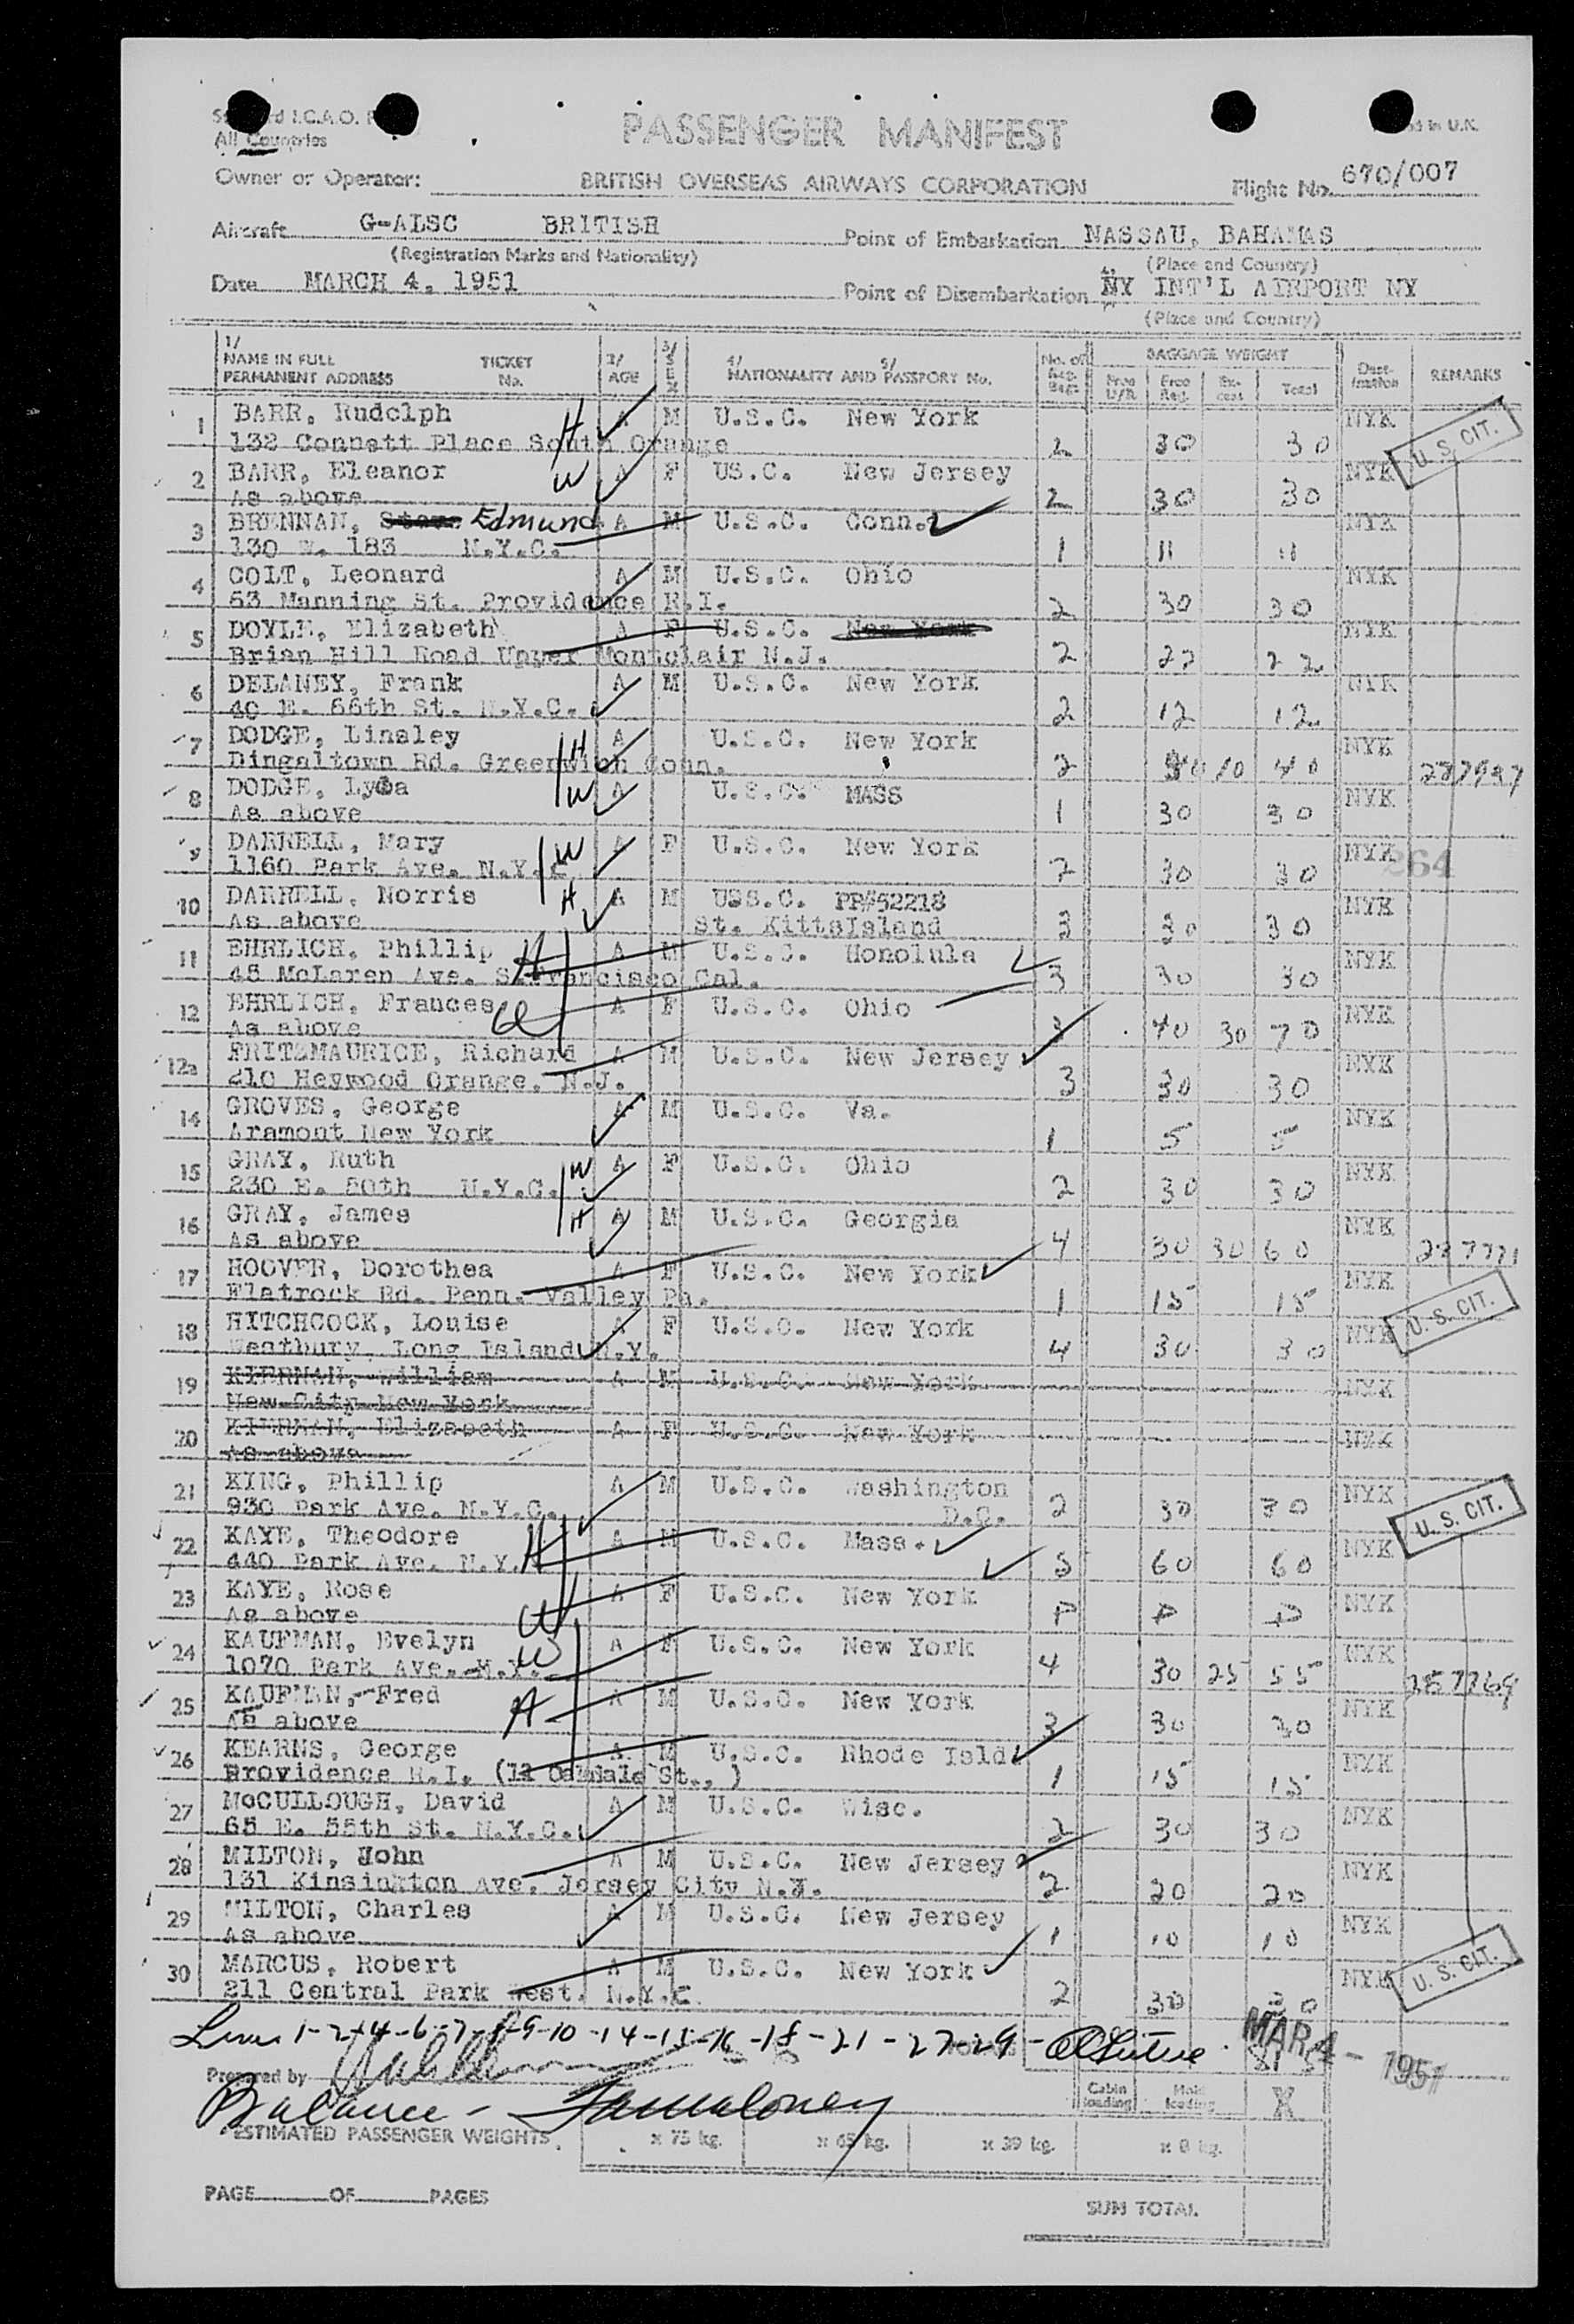 All Countries
PASSENGER MANIFEST
in U.K.
Owner or Operator: BRITISH OVERSEAS AIRWAYS CORPORATION Flight No. 670/007
Aircraft G-ALSC BRITISH Point of Embarkation NASSAU, BAHAMAS
(Registration Marks and Nationality) (Place and Country)
Date MARCH 4, 1951 Point of Disembarkation NY INT'L AIRPORT NY
(Place and Country)
1/ NAME IN FULL PERMANENT ADDRESS TICKET No. 2/ AGE 3/ SEX 4/ NATIONALITY AND 5/ PASSPORT No. No. of Bags BAGGAGE WEIGHT Free Reg. Excess Total Destination REMARKS
1 BARR, Rudolph H A M U.S.C. New York NYK
132 Connett Place South Orange 2 30 30 U. S. CIT.
2 BARR, Eleanor W A F US.C. New Jersey NYK
As above 2 30 30
3 BRENNAN, Edmund A M U.S.C. Conn. NYK
130 W. 183 N.Y.C. 1 11 11
4 COLT, Leonard A M U.S.C. Ohio NYK
63 Manning St. Providence R.I. 2 30 30
5 DOYLE, Elizabeth A F U.S.C. New York NYK
Brian Hill Road Upper Montclair N.J. 2 22 22
6 DELANEY, Frank A M U.S.C. New York NYK
40 E. 66th St. N.Y.C. 2 12 12
7 DODGE, Linsley H A U.S.C. New York NYK
Dingaltown Rd. Greenwich Conn. 2 10 40
8 DODGE, W A U.S.C. MASS NYK
As above 1 30 30
9 DARRELL, Mary W A F U.S.C. New York NYK 264
1160 Park Ave. N.Y.C 2 30 30
10 DARRELL, Norris H A M USS.C. PP#52218 NYK
As above St. KittsIsland 3 30 30
11 EHRLICH, Phillip H A M U.S.C. Honolula NYK
45 McLaren Ave. S. Francisco Cal. 3 30 30
12 EHRLICH, Frances W A F U.S.C. Ohio NYK
As above 3 40 30 70
12a FRITZMAURICE, Richard A M U.S.C. New Jersey NYK
210 Heywood Orange, N.J. 3 30 30
14 GROVES, George A M U.S.C. Va. NYK
Aramont New York 1 5 5
15 GRAY, Ruth W A F U.S.C. Ohio NYK
230 E. 50th N.Y.C. 2 30 30
16 GRAY, James H A M U.S.C. Georgia NYK
As above 4 30 30 60
17 HOOVER, Dorothea A F U.S.C. New York NYK
Flatrock Rd. Penn. Valley Pa. 1 15 15 U. S. CIT.
18 HITCHCOCK, Louise A F U.S.C. New York NYK
Westbury, Long Island N.Y. 4 30 30
19 KIERNAN, William A M U.S.C. New York NYK
New City New York
20 KIERNAN, Elizabeth A F U.S.C. New York NYK
As above
21 KING, Phillip A M U.S.C. Washington NYK
930 Park Ave. N.Y.C. D.C. 2 30 30 U. S. CIT.
22 KAYE, Theodore H A M U.S.C. Mass. NYK
440 Park Ave. N.Y. 5 60 60
23 KAYE, Rose W A F U.S.C. New York NYK
As above P P P
24 KAUFMAN, Evelyn W A F U.S.C. New York NYK
1070 Park Ave. N.Y. 4 30 25 55
25 KAUFMAN, Fred H A M U.S.C. New York NYK
As above 3 30 30
26 KEARNS, George A M U.S.C. Rhode Isld NYK
Providence R.I. (12 Oakdale St., ) 1 15 15
27 McCULLOUGH, David A M U.S.C. Wisc. NYK
65 E. 55th St. N.Y.C. 2 30 30
28 MILTON, John A M U.S.C. New Jersey NYK
131 Kinsington Ave. Jersey City N.J. 2 20 20
29 MILTON, Charles A M U.S.C. New Jersey NYK
As above 1 10 10
30 MARCUS, Robert A M U.S.C. New York NYK U. S. CIT.
211 Central Park West. N.Y.C 2 30 30
Lines 1-2-4-6-7-8-9-10-14-15-16-18-21-27-29- MAR 4 - 1951
Prepared by
Cabin loading Hold loading X
Balance -
ESTIMATED PASSENGER WEIGHTS x 75 kg. x 65 kg. x 39 kg. x 8 kg.
PAGE OF PAGES
SUM TOTAL